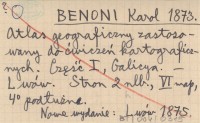 ?
BENONI Karol 1873.
Atlas geograficzny zastoso-
wany do ćwiczeń kartografic-
znych Część I. Galicya. -
Lwów. Stron 2 nlb., VI map,
4° podłużna.
Nowe wydanie: Lwów 1875.